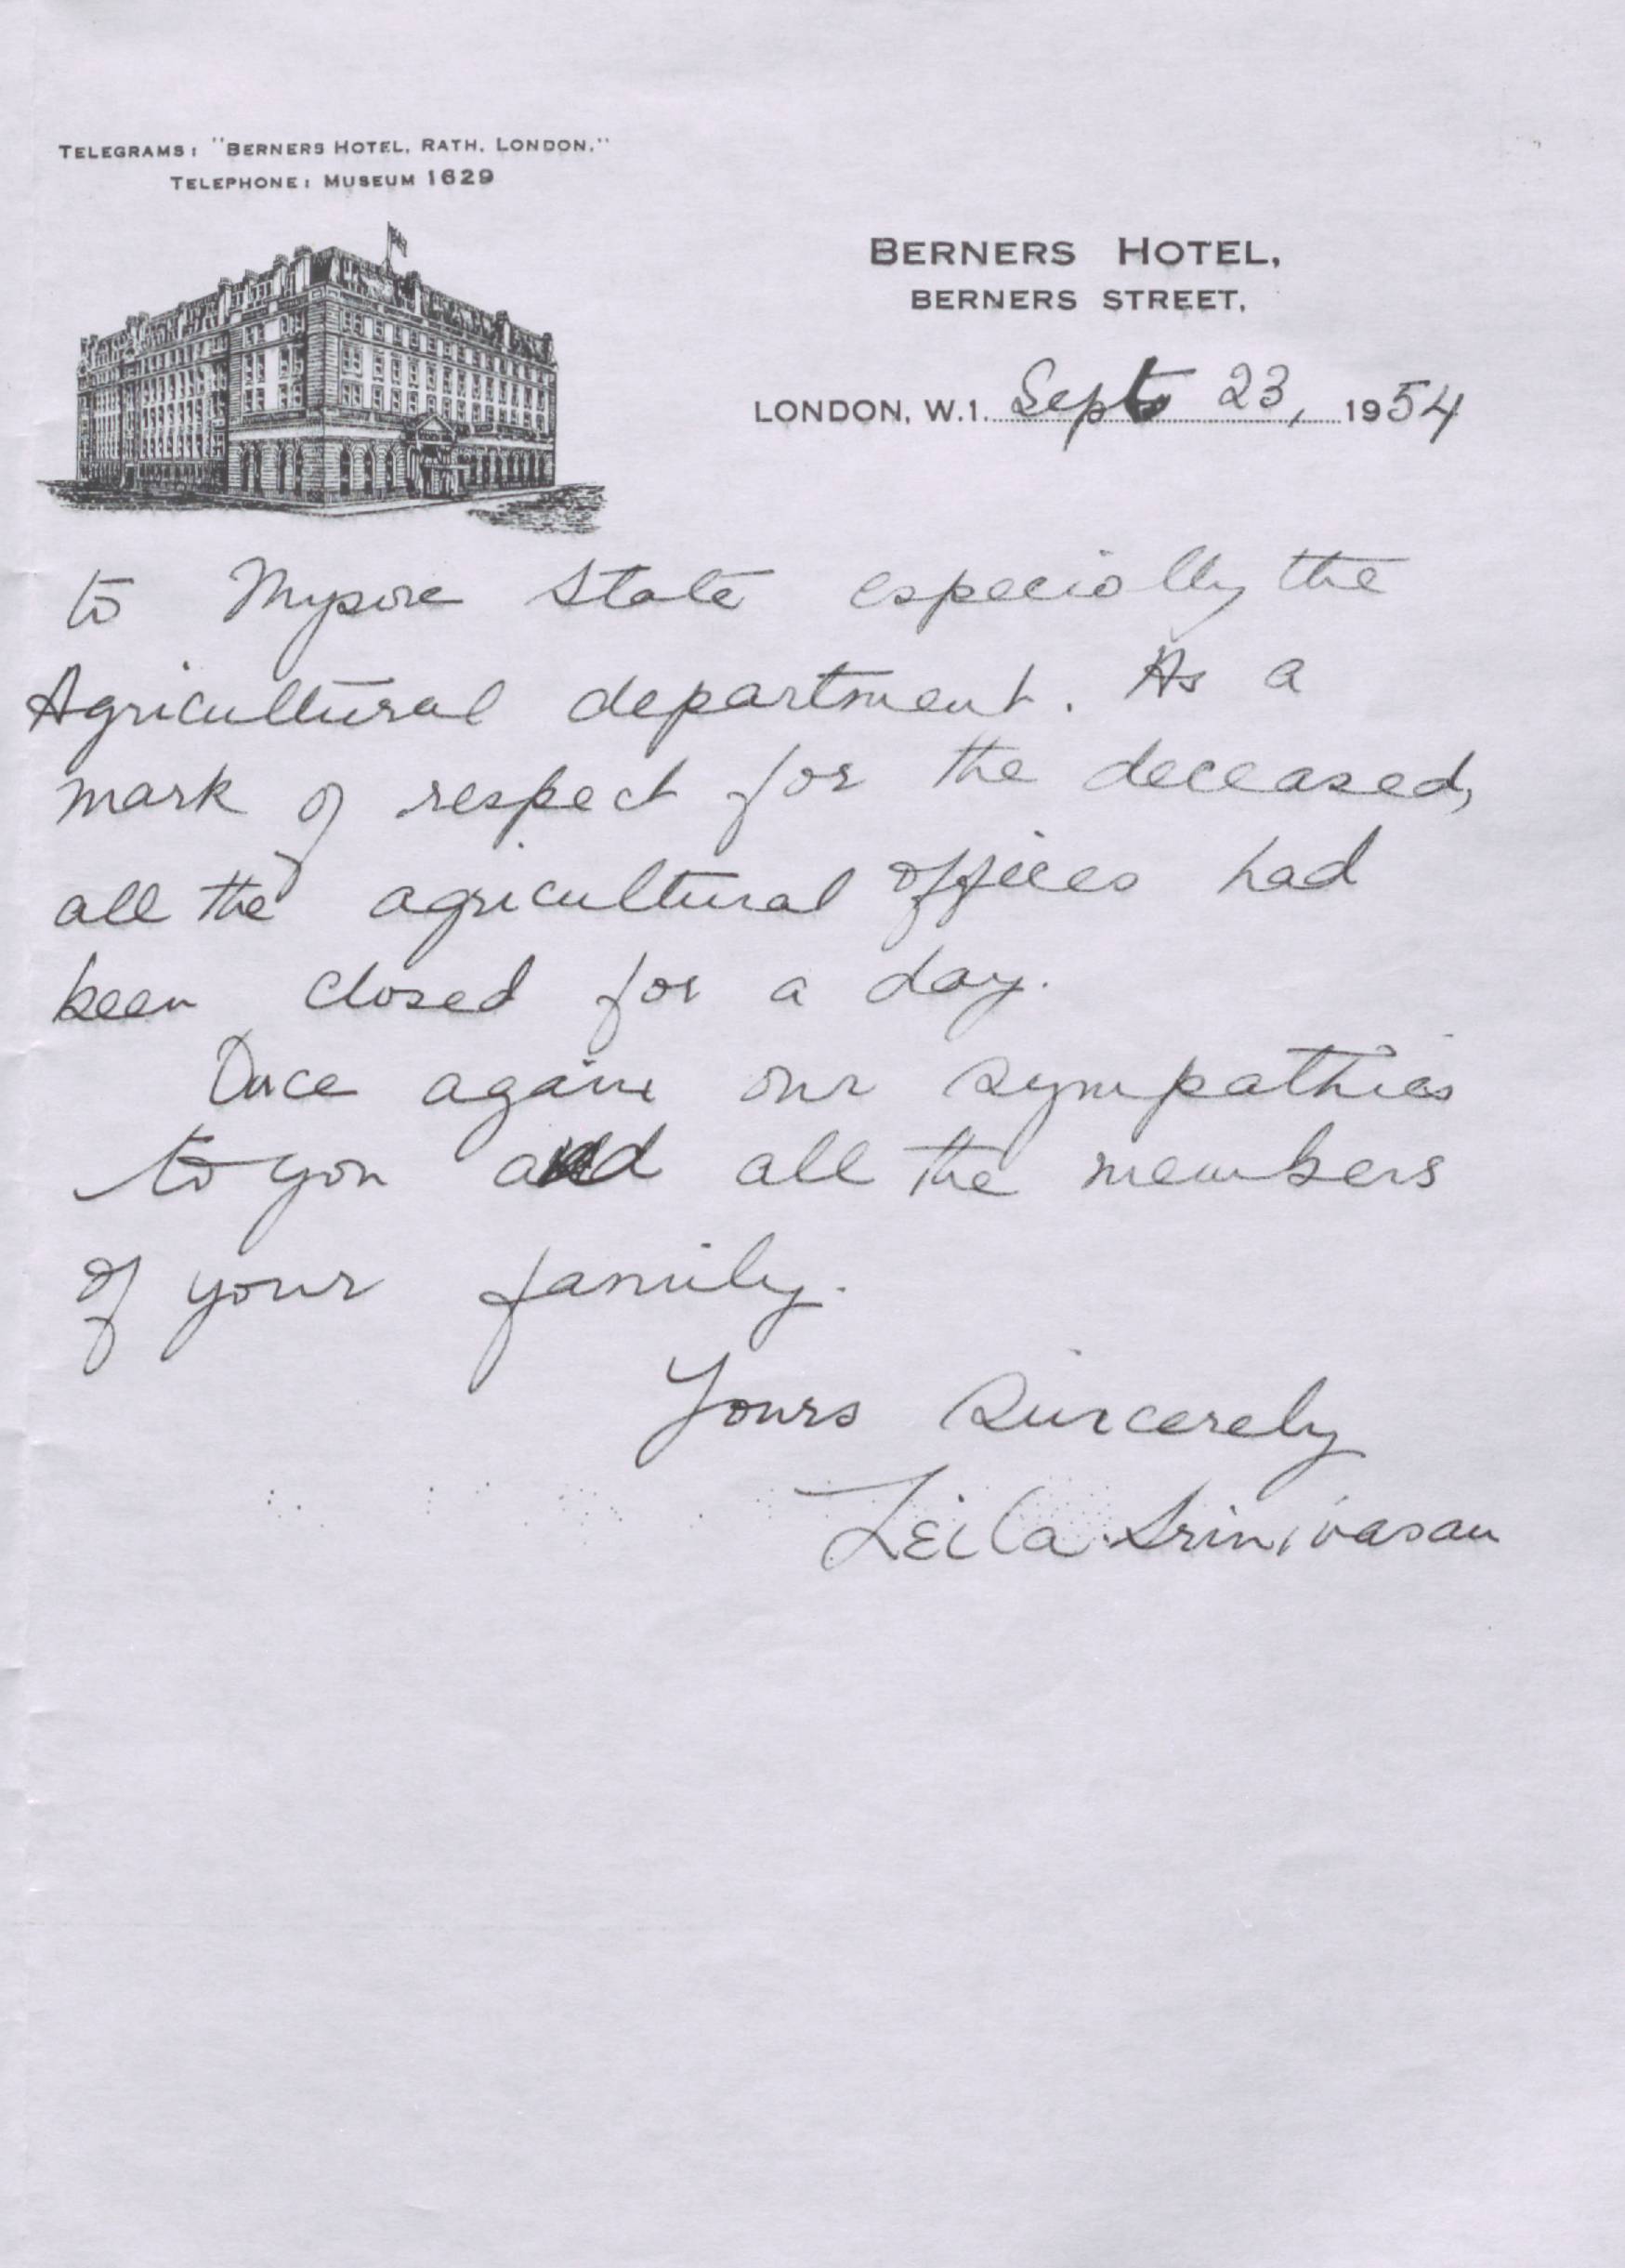 TELEGRAMS: "BERNERS HOTEL, RATH, LONDON."
TELEPHONE: MUSEUM 1629
BERNERS HOTEL,
BERNERS STREET,
LONDON, W.1. Sept 23, 1954
to Mysore State especially the
Agricultural department. As a
mark of respect for the deceased,
all the agricultural offices had
been closed for a day.
Once again our sympathies
to you and all the members
of your family.
Yours Sincerely
Leila Srinivasan